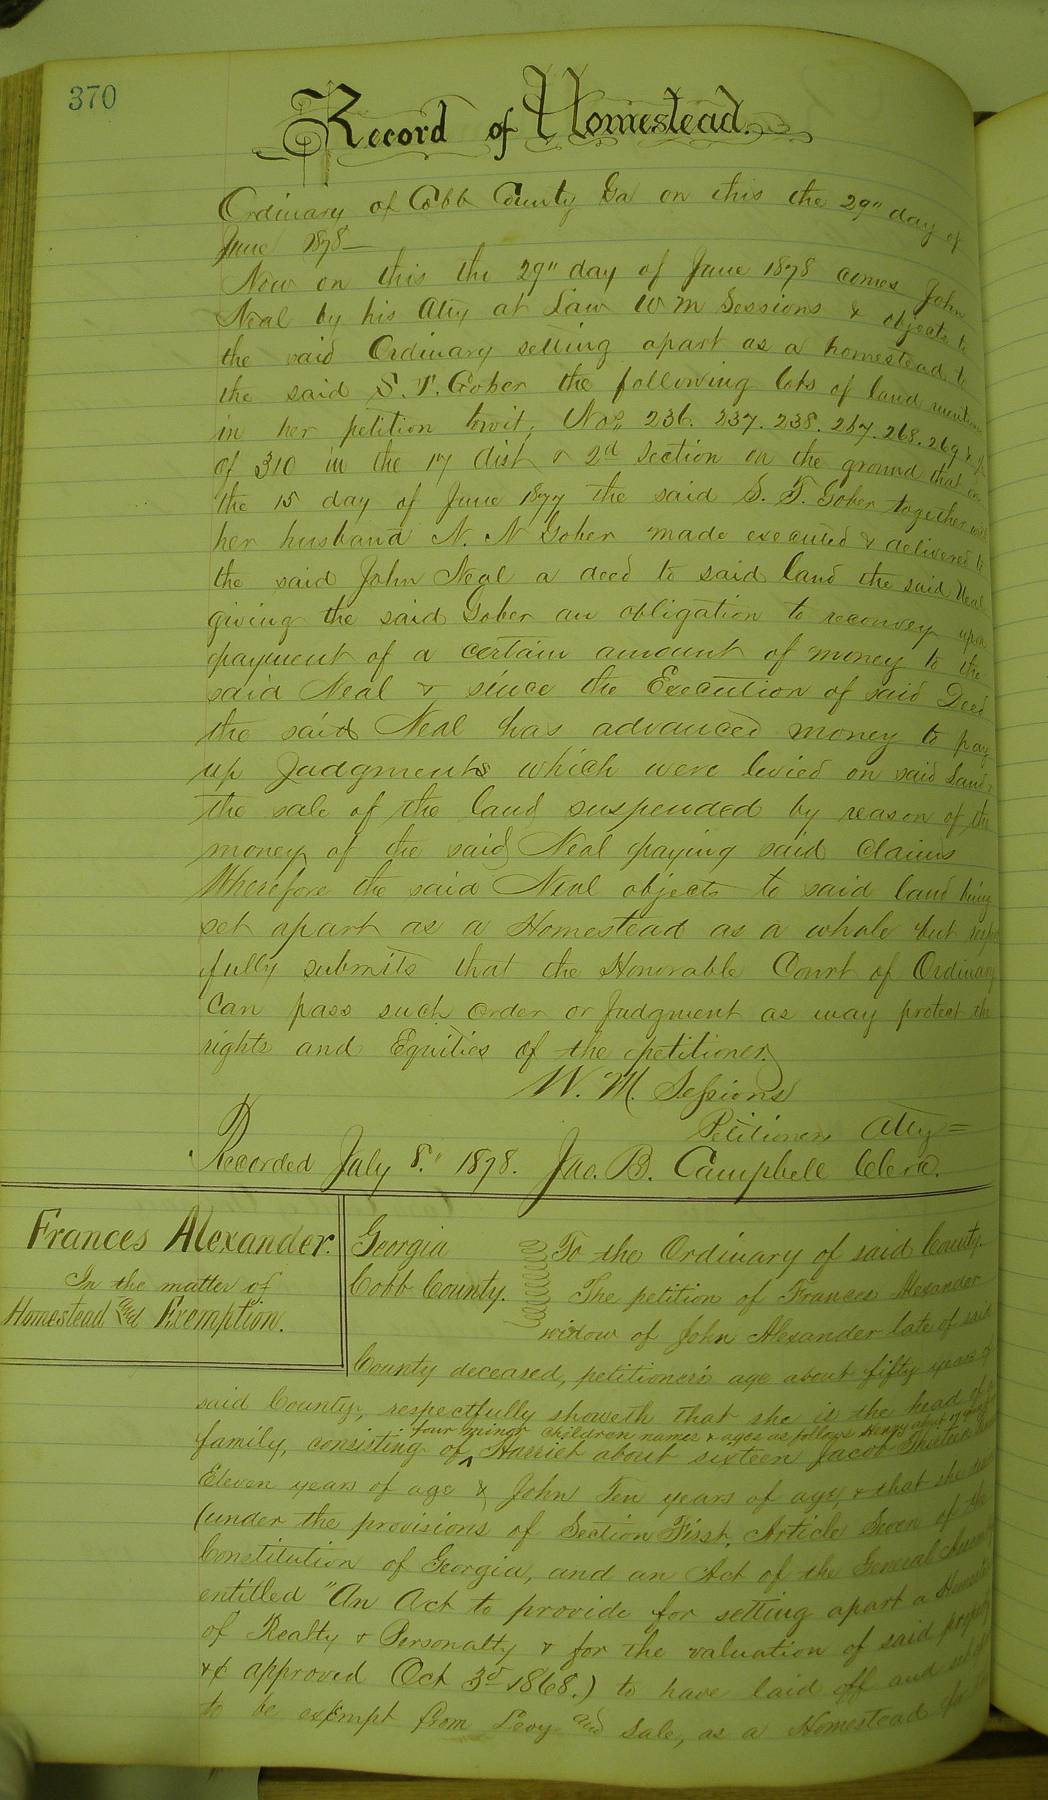 370
Record of Homestead.
Ordinary of Cobb County Ga on this the 29" day of
June 1878—
Now on this the 29" day of June 1878 comes John
Neal by his Atty at Law W M Sessions & objects to
the said Ordinary setting apart as a homestead to
the said S. T. Gober the following lots of land
in her petition towit, Nos. 236. 237. 238. 267. 268. 269 &
of 310 in the 17 dist & 2d Section on the ground that on
the 15 day of June 1877 the said S. T. Gober together with
her husband N. N Gober made executed & delivered to
the said John Neal a deed to said land the said Neal
giving the said Gober an obligation to reconvey upon
payment of a certain amount of money to the
said Neal & since the Execution of said Deed
the said Neal has advanced money to pay
up Judgments which were levied on said Land &
the sale of the land suspended by reason of the
money of the said Neal paying said claims
Therefore the said Neal objects to said land being
set apart as a Homestead as a whole but
fully submits that the Honorable Court of Ordinary
can pass such order or Judgment as way protect the
rights and Equities of the petitioner.
W. M. Sessions
Petitioners Atty=
Recorded July 8." 1878. Jno. B. Campbell Clerc.
Frances Alexander.
In the matter of
Homestead and Exemption.
Georgia
Cobb County.
To the Ordinary of said County.
The petition of Frances Alexander
widow of John Alexander late of said
County deceased, petitioner's age about fifty years of
said County, respectfully showeth that she is the head of a
four minor children names & ages as follows Henry about
family, consisting of ^ Harriet about sixteen Jacob Thirteen
Eleven years of age & John Ten years of age, & that she
(under the provisions of Section First, Article Seven of the
Constitution of Georgia, and an Act of the General Assembly
entitled "An Act to provide for setting apart a Homestead
of Realty & Personalty & for the valuation of said property
&c approved Oct 3d 1868.) to have laid off and
to be exempt from Levy and Sale, as a Homestead for